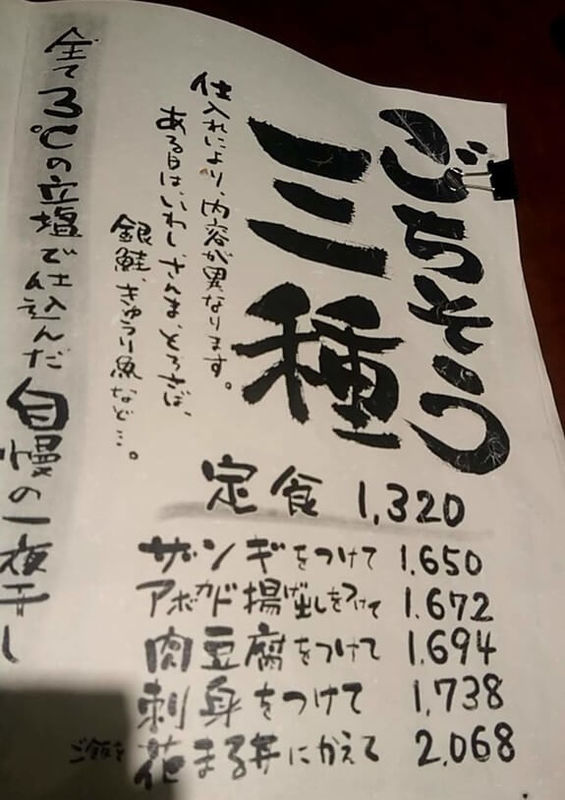 ごちそう
三種
仕入れにより、内容が異なります。
ある日は、いわし、さんま、とろさば、
銀鮭、きゅうり魚など…。
定食 1,320
ザンギをつけて 1,650
アボカド揚げ出しをつけて 1,672
肉豆腐をつけて 1,694
刺身をつけて 1,738
ご飯を花まる丼にかえて 2,068
全て3℃の立塩で仕込んだ自慢の一夜干し